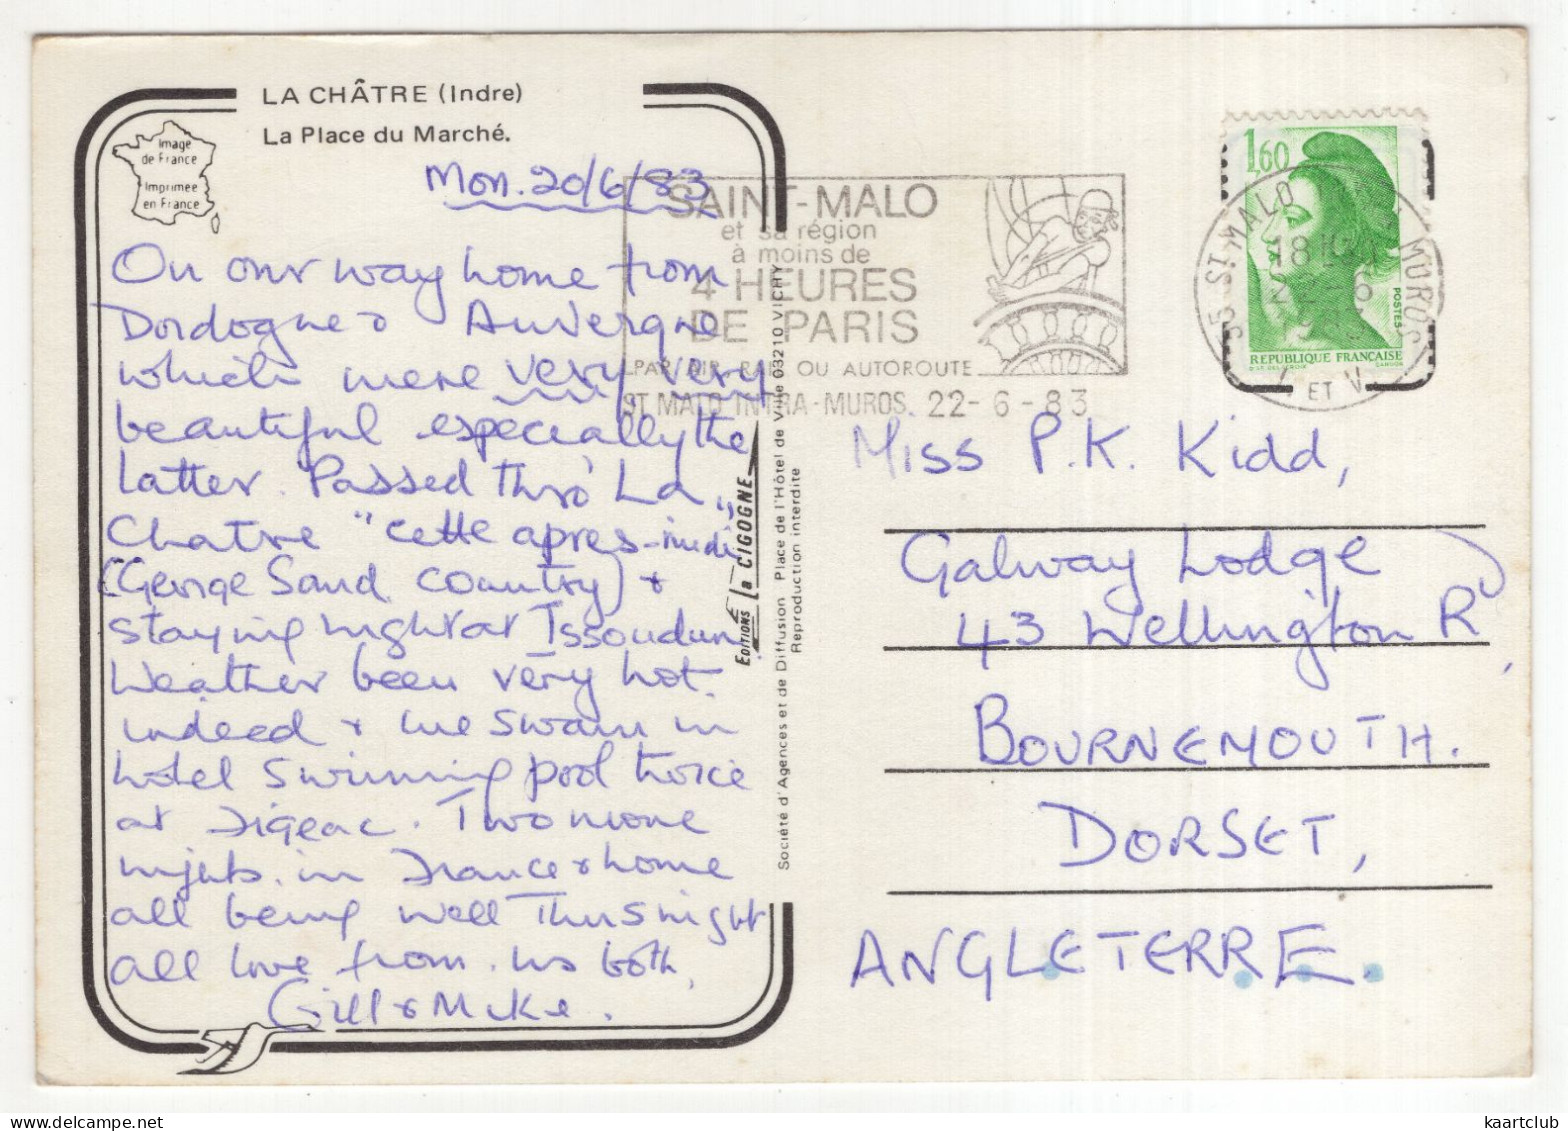 LA CHÂTRE (Indre)
La Place du Marché.
Image
de France
Imprimée
en France
Mon. 20/6/83
On our way home from
Dordogne & Auvergne
which were very very
beautiful especially the
latter. Passed thro' La
Chatre "cette apres-midi"
(George Sand country) &
staying night at Issoudun.
Weather been very hot
indeed & we swam in
hotel swimming pool twice
at Figeac. Two more
nights in France & home
all being well Thurs night
all love from us both,
Gill & Mike.
EDITIONS la CIGOGNE
Société d'Agences et de Diffusion Place de l'Hôtel de Ville 03210 VICHY
Reproduction interdite
SAINT-MALO
et sa région
à moins de
4 HEURES
DE PARIS
PAR AIR RAIL OU AUTOROUTE
ST MALO INTRA-MUROS 22-6-83
1,60
POSTES
REPUBLIQUE FRANCAISE
35 ST MALO MUROS
18H
22-6
ET V
Miss P.K. Kidd,
Galway Lodge
43 Wellington Rd,
BOURNEMOUTH.
DORSET,
ANGLETERRE.
kaartclub